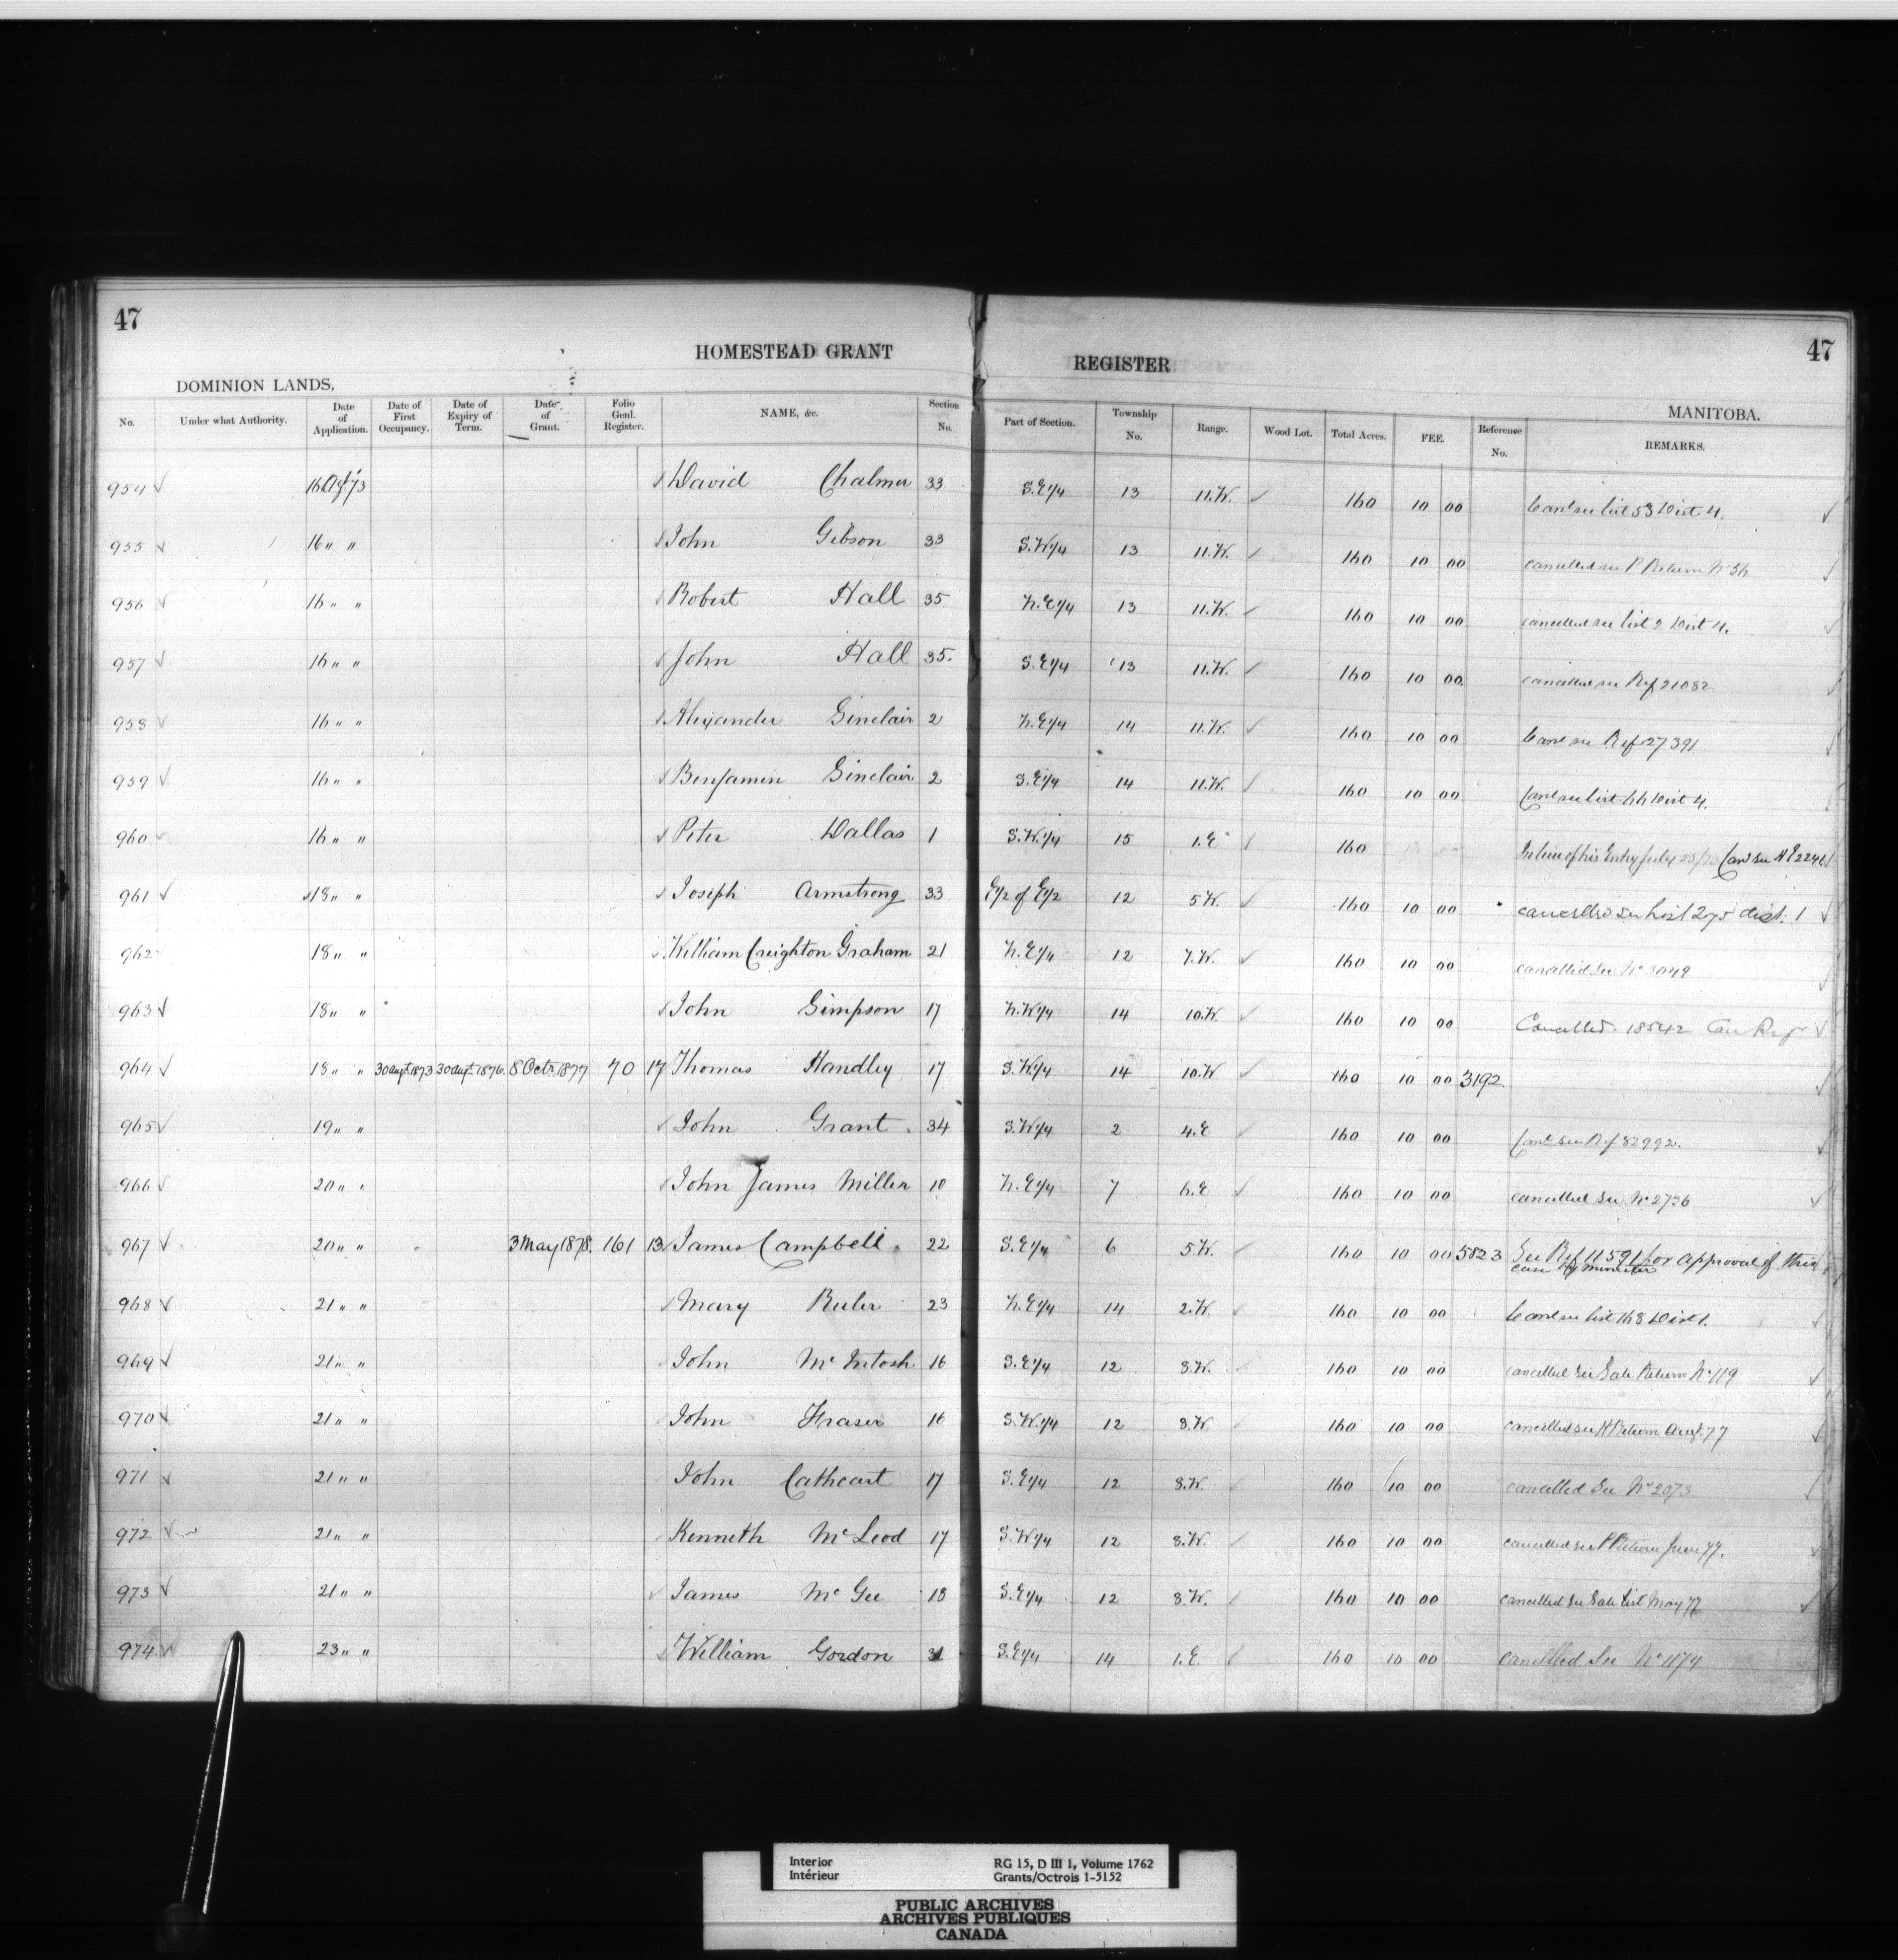 47
47
HOMESTEAD GRANT REGISTER
DOMINION LANDS.
MANITOBA.
No. Under what Authority. Date of Application. Date of First Occupancy. Date of Expiry of Term. Date of Grant. Folio Genl. Register. NAME, &c. Section No. Part of Section. Township No. Range. Wood Lot. Total Acres. FEE. Reference No. REMARKS.
954 16 Augt 73 David Chalmer 33 S.E 1/4 13 11.W. 160 10 00 Canl see list 53 Dist. 4.
955 16 " " John Gibson 33 S.W 1/4 13 11.W. 160 10 00 cancelled see P Return No 56
956 16 " " Robert Hall 35 N.E 1/4 13 11.W. 160 10 00 cancelled see list 2 Dist 4.
957 16 " " John Hall 35. S.E 1/4 13 11.W. 160 10 00. cancelled see Ref 21082
958 16 " " Alexander Sinclair 2 N.E 1/4 14 11.W. 160 10 00 Canl see Ref 27391
959 16 " " Benjamin Sinclair 2 S.E 1/4 14 11.W. 160 10 00 Canl see list 66 Dist 4.
960 16 " " Peter Dallas 1 S.W. 1/4 15 1.E 160 In lieu of his Entry July Canl see H E 2241
961 18 " " Joseph Armstrong 33 E 1/2 of E 1/2 12 5 W. 160 10 00 cancelled see List 275 dist. 1
962 18 " " William Creighton Graham 21 N.E 1/4 12 7.W. 160 10 00 cancelled See No 3049
963 18 " " John Simpson 17 N.W 1/4 14 10.W. 160 10 00 Cancelled. 18542
964 18 " " 30 Augt 1873 30 Augt 1876 8 Octr. 1877 70 17 Thomas Handley 17 S.W 1/4 14 10.W 160 10 00 3192
965 19 " " John Grant 34 S.W 1/4 2 4.E 160 10 00 Canl see Ref 82992.
966 20 " " John James Miller 10 N.E 1/4 7 6.E 160 10 00 cancelled see No 2736
967 20 " " 3 May 1878. 161 13 James Campbell 22 S.E 1/4 6 5 W. 160 10 00 5823 See Ref 11591 for approval of this
case by minister
968 21 " " Mary 23 N.E 1/4 14 2.W. 160 10 00 Canl see list 168 Dist 1.
969 21 " " John McIntosh 16 S.E 1/4 12 8.W. 160 10 00 cancelled see Sale Return No 119
970 21 " " John Fraser 16 S.W. 1/4 12 8.W 160 10 00 cancelled see H Return Augt. 77
971 21 " " John Cathcart 17 S.E 1/4 12 8.W. 160 10 00 cancelled See No 2073
972 21 " " Kenneth McLeod 17 S.W 1/4 12 8.W. 160 10 00 cancelled see P Return June 77.
973 21 " " James McGee 18 S.E 1/4 12 8.W. 160 10 00 cancelled see Sale List May 77
974 23 " " William Gordon 31 S.E 1/4 14 1.E. 160 10 00 cancelled See No 1174
Interior RG 15, D III 1, Volume 1762
Intérieur Grants/Octrois 1-5152
PUBLIC ARCHIVES
ARCHIVES PUBLIQUES
CANADA